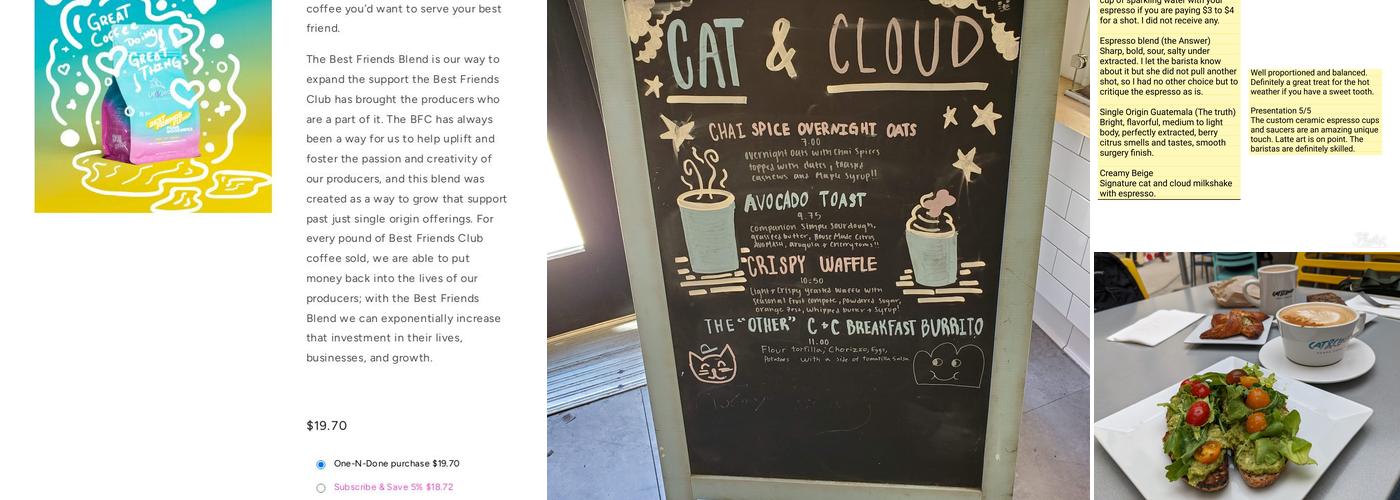 GREAT
Coffee
Doing
GREAT
THINGS
coffee you'd want to serve your best
friend.
The Best Friends Blend is our way to
expand the support the Best Friends
Club has brought the producers who
are a part of it. The BFC has always
been a way for us to help uplift and
foster the passion and creativity of
our producers, and this blend was
created as a way to grow that support
past just single origin offerings. For
every pound of Best Friends Club
coffee sold, we are able to put
money back into the lives of our
producers; with the Best Friends
Blend we can exponentially increase
that investment in their lives,
businesses, and growth.
$19.70
One-N-Done purchase $19.70
Subscribe & Save 5% $18.72
CAT & CLOUD
CHAI SPICE OVERNIGHT OATS
7.00
overnight oats with Chai Spices
topped with dates, toasted
cashews and Maple Syrup!!
AVOCADO TOAST
9.75
Companion Simple Sourdough,
grassfed butter, House Made Citrus
AvoMASH, Arugula & Cherry toms!!
CRISPY WAFFLE
10.50
Light & Crispy Yeasted Waffle with
Seasonal Fruit compote, Powdered Sugar,
Orange Zest, Whipped butter & Syrup!
THE "OTHER" C+C BREAKFAST BURRITO
11.00
Flour tortilla, Chorizo, Eggs,
Potatoes with a side of Tomatillo Salsa
cup of sparkling water with your
espresso if you are paying $3 to $4
for a shot. I did not receive any.
Espresso blend (the Answer)
Sharp, bold, sour, salty under
extracted. I let the barista know
about it but she did not pull another
shot, so I had no other choice but to
critique the espresso as is.
Single Origin Guatemala (The truth)
Bright, flavorful, medium to light
body, perfectly extracted, berry
citrus smells and tastes, smooth
surgery finish.
Creamy Beige
Signature cat and cloud milkshake
with espresso.
Well proportioned and balanced.
Definitely a great treat for the hot
weather if you have a sweet tooth.
Presentation 5/5
The custom ceramic espresso cups
and saucers are an amazing unique
touch. Latte art is on point. The
baristas are definitely skilled.